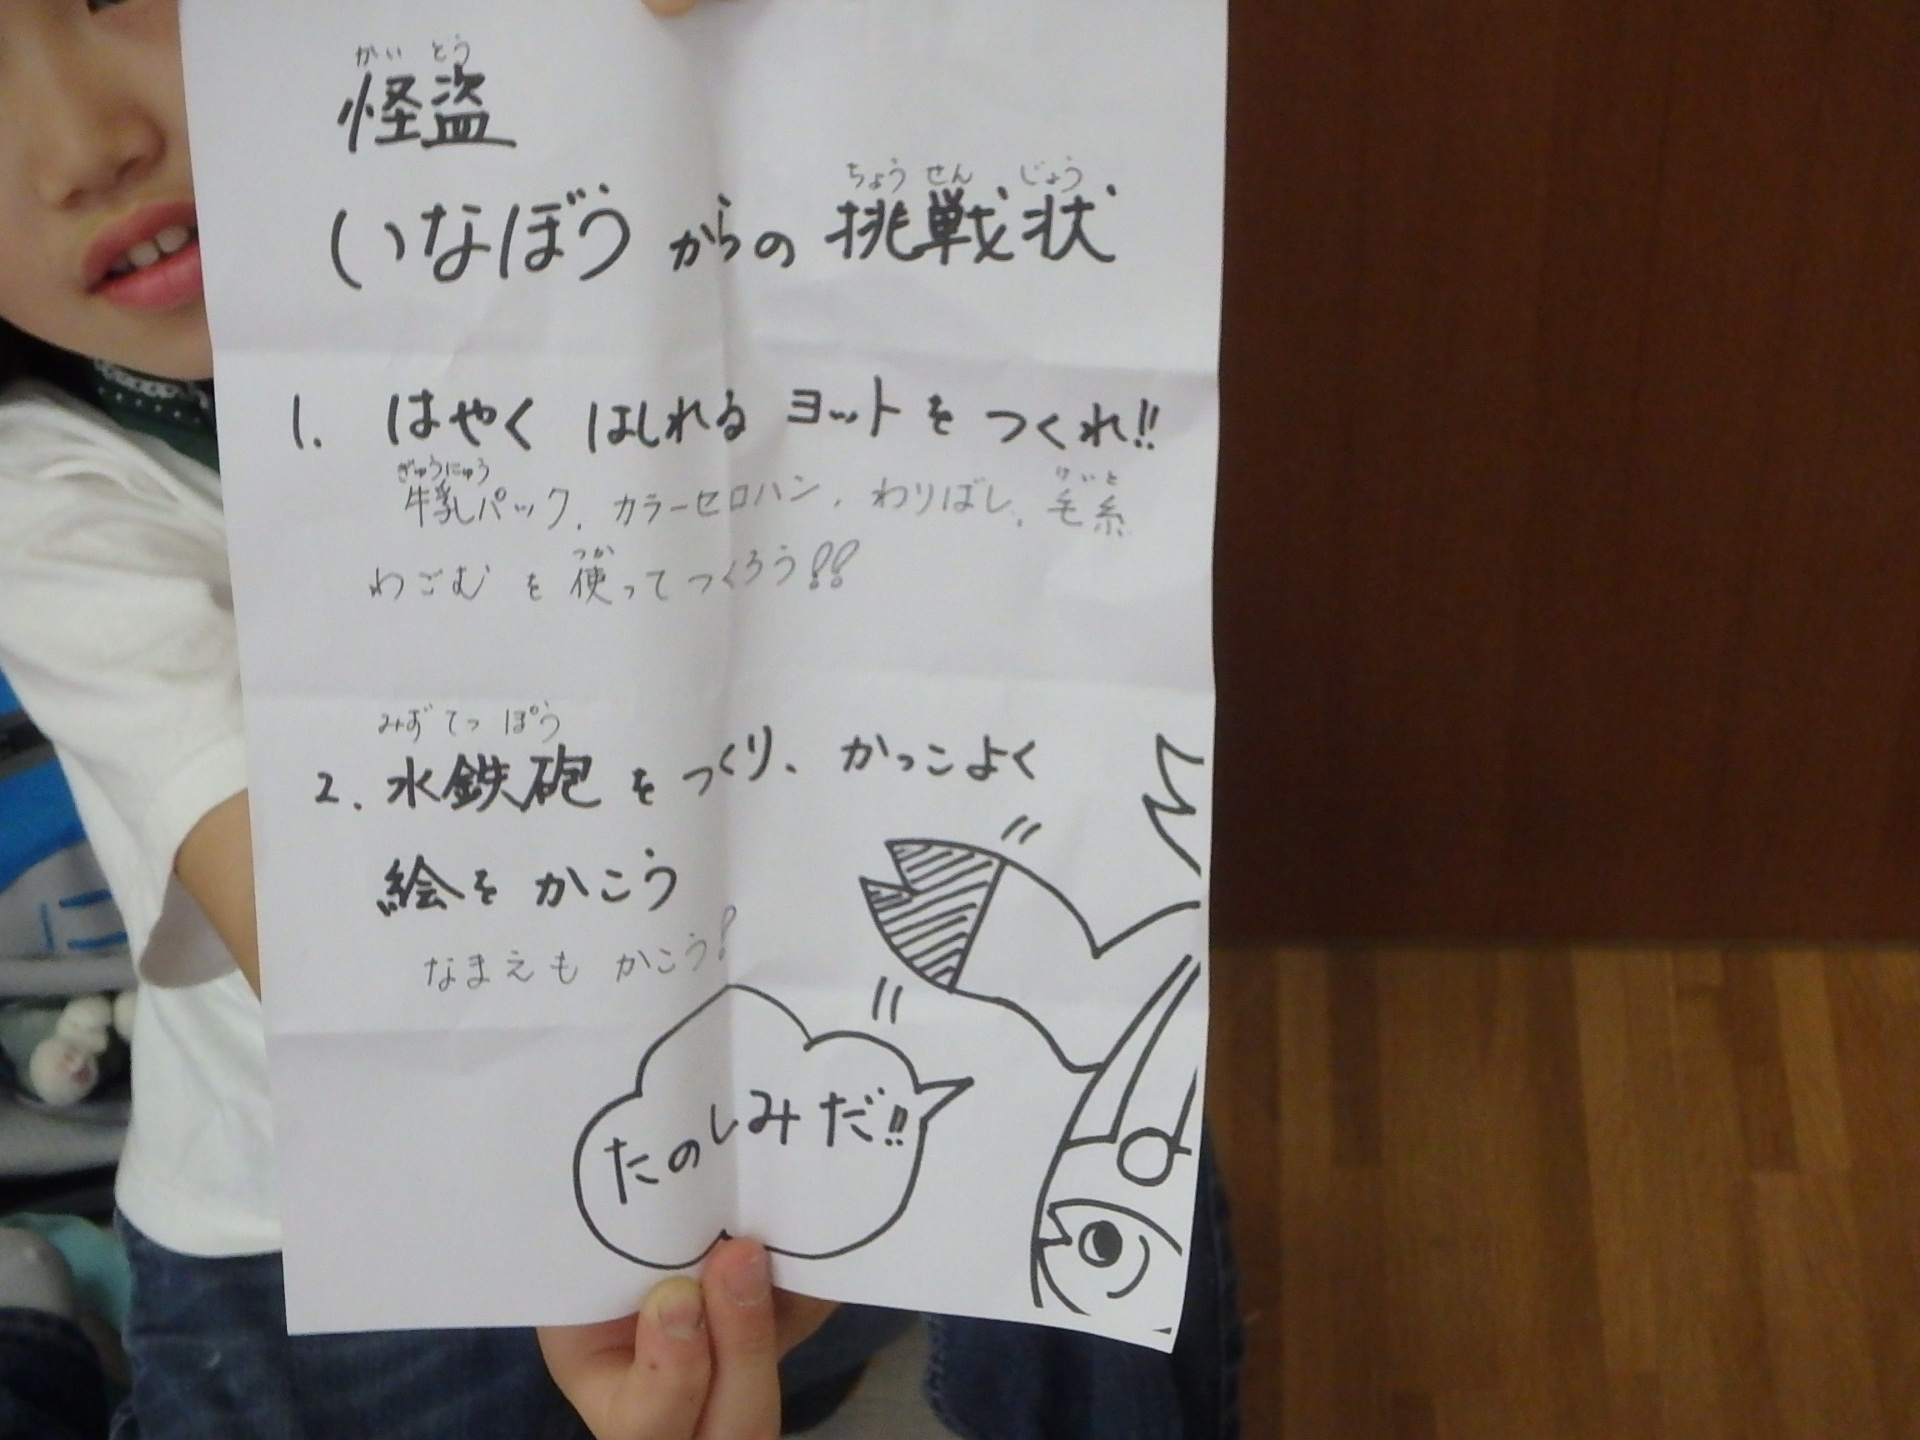 がいとう
怪盗
ちょうせんじょう
いなぼうからの挑戦状
1. はやく はしれる ヨットを つくれ!!
ぎゅうにゅう けいと
牛乳パック、カラーセロハン、わりばし、毛糸
つか
わごむ を 使ってつくろう!!
みずてっぽう
2. 水鉄砲を つくり、かっこよく
絵を かこう
なまえも かこう!
たのしみだ!!